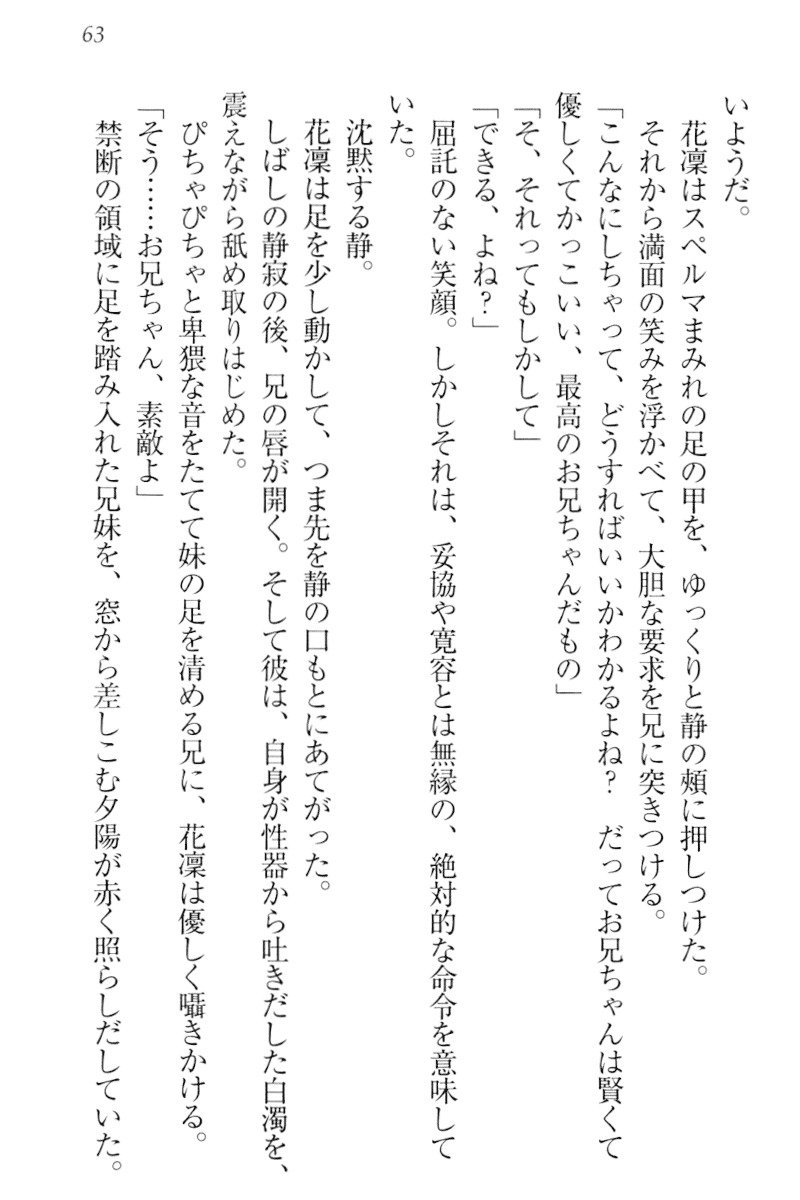 63
いようだ。
花凜はスペルマまみれの足の甲を、ゆっくりと静の頰に押しつけた。
それから満面の笑みを浮かべて、大胆な要求を兄に突きつける。
「こんなにしちゃって、どうすればいいかわかるよね？　だってお兄ちゃんは賢くて
優しくてかっこいい、最高のお兄ちゃんだもの」
「そ、それってもしかして」
「できる、よね？」
屈託のない笑顔。しかしそれは、妥協や寛容とは無縁の、絶対的な命令を意味して
いた。
沈黙する静。
花凜は足を少し動かして、つま先を静の口もとにあてがった。
しばしの静寂の後、兄の唇が開く。そして彼は、自身が性器から吐きだした白濁を、
震えながら舐め取りはじめた。
ぴちゃぴちゃと卑猥な音をたてて妹の足を清める兄に、花凜は優しく囁きかける。
「そう……お兄ちゃん、素敵よ」
禁断の領域に足を踏み入れた兄妹を、窓から差しこむ夕陽が赤く照らしだしていた。